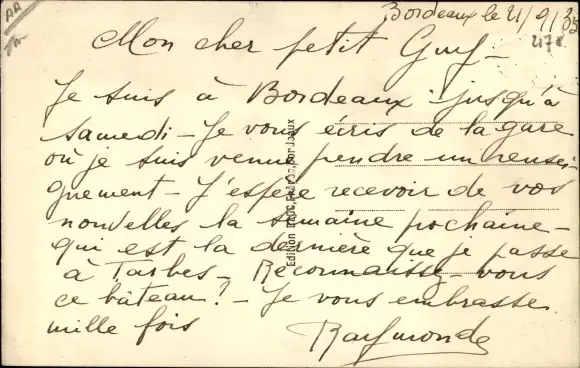 AA
Bordeaux le 21/9/35
2178
Mon cher petit Guy -
Je suis à Bordeaux jusqu'à
samedi - Je vous écris de la gare
où je suis venue prendre un rensei-
gnement - J'espère recevoir de vos
nouvelles la semaine prochaine -
qui est la dernière que je passe
à Tarbes - Reconnaissez-vous
ce bâteau? - Je vous embrasse
mille fois
Raymonde